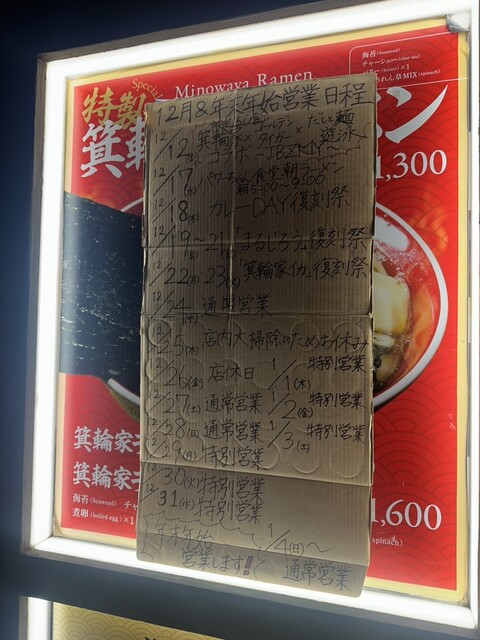 Special
Minowaya Ramen
特製
箕輪
ン
海苔(Seaweed)
チャーシュー
×1
うれん草MIX(spinach)
1,300
12月&年末年始営業日程
12/12(金) 箕輪家×タイガー×だしと麺遊泳
コラボ
12/17(水) 食堂朝ラーメン
朝5:00~9:00
12/18(木) カレーDAY復刻祭
12/19~21 「まるじろう」復刻祭
12/22(月) 23(火) 「箕輪家イカ」復刻祭
12/24(水) 通常営業
12/25(木) 店内大掃除のためお休み
12/26(金) 店休日
12/27(土) 通常営業
12/28(日) 通常営業
12/29(月) 特別営業
12/30(火) 特別営業
12/31(水) 特別営業
1/1(木) 特別営業
1/2(金) 特別営業
1/3(土) 特別営業
1/4(日)~
通常営業
年末年始
営業します!!
箕輪家
箕輪家
海苔(Seaweed) チャ
煮卵(boiled egg)×1
1,600
(spinach)